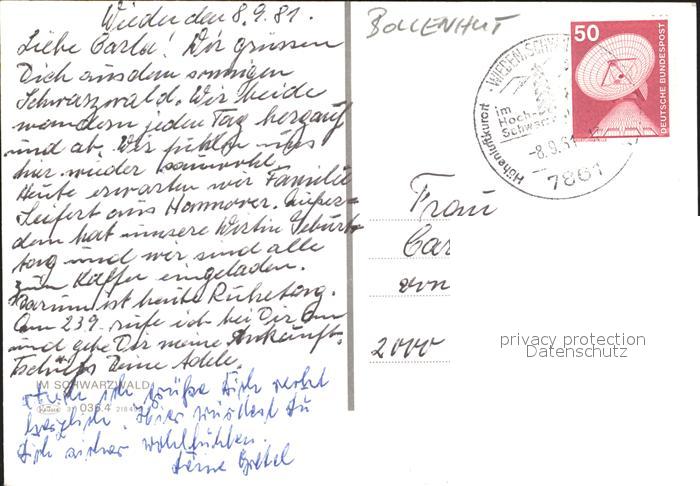 Wieden den 8.9.81.
Liebe Carla! Wir grüssen
Dich aus dem sonnigen
Schwarzwald. Wir beide
wandern jeden Tag bergauf
und ab. Wir fühlen uns
hier wieder sauwohl.
Heute erwarten wir Familie
Seifert aus Hannover. Außer-
dem hat unsere Wirtin Geburts-
tag und wir sind alle
zum Kaffee eingeladen.
Darum ist heute Ruhetag.
Am 23.9. rufe ich bei Dir an
und gebe Dir meine Ankunft.
Tschüß Deine Adele.
IM SCHWARZWALD
Krüger 036.4
Auch ich grüße Dich recht
herzlich. Hier würdest Du
Dich sicher wohlfühlen.
Deine Gretel
BOLLENHUT
50
DEUTSCHE BUNDESPOST
WIEDEN, SCHW
im
Hoch-
Schwarz
Höhenluftkurort
-8.9.81
7861
Frau
Car
von
2000
privacy protection
Datenschutz